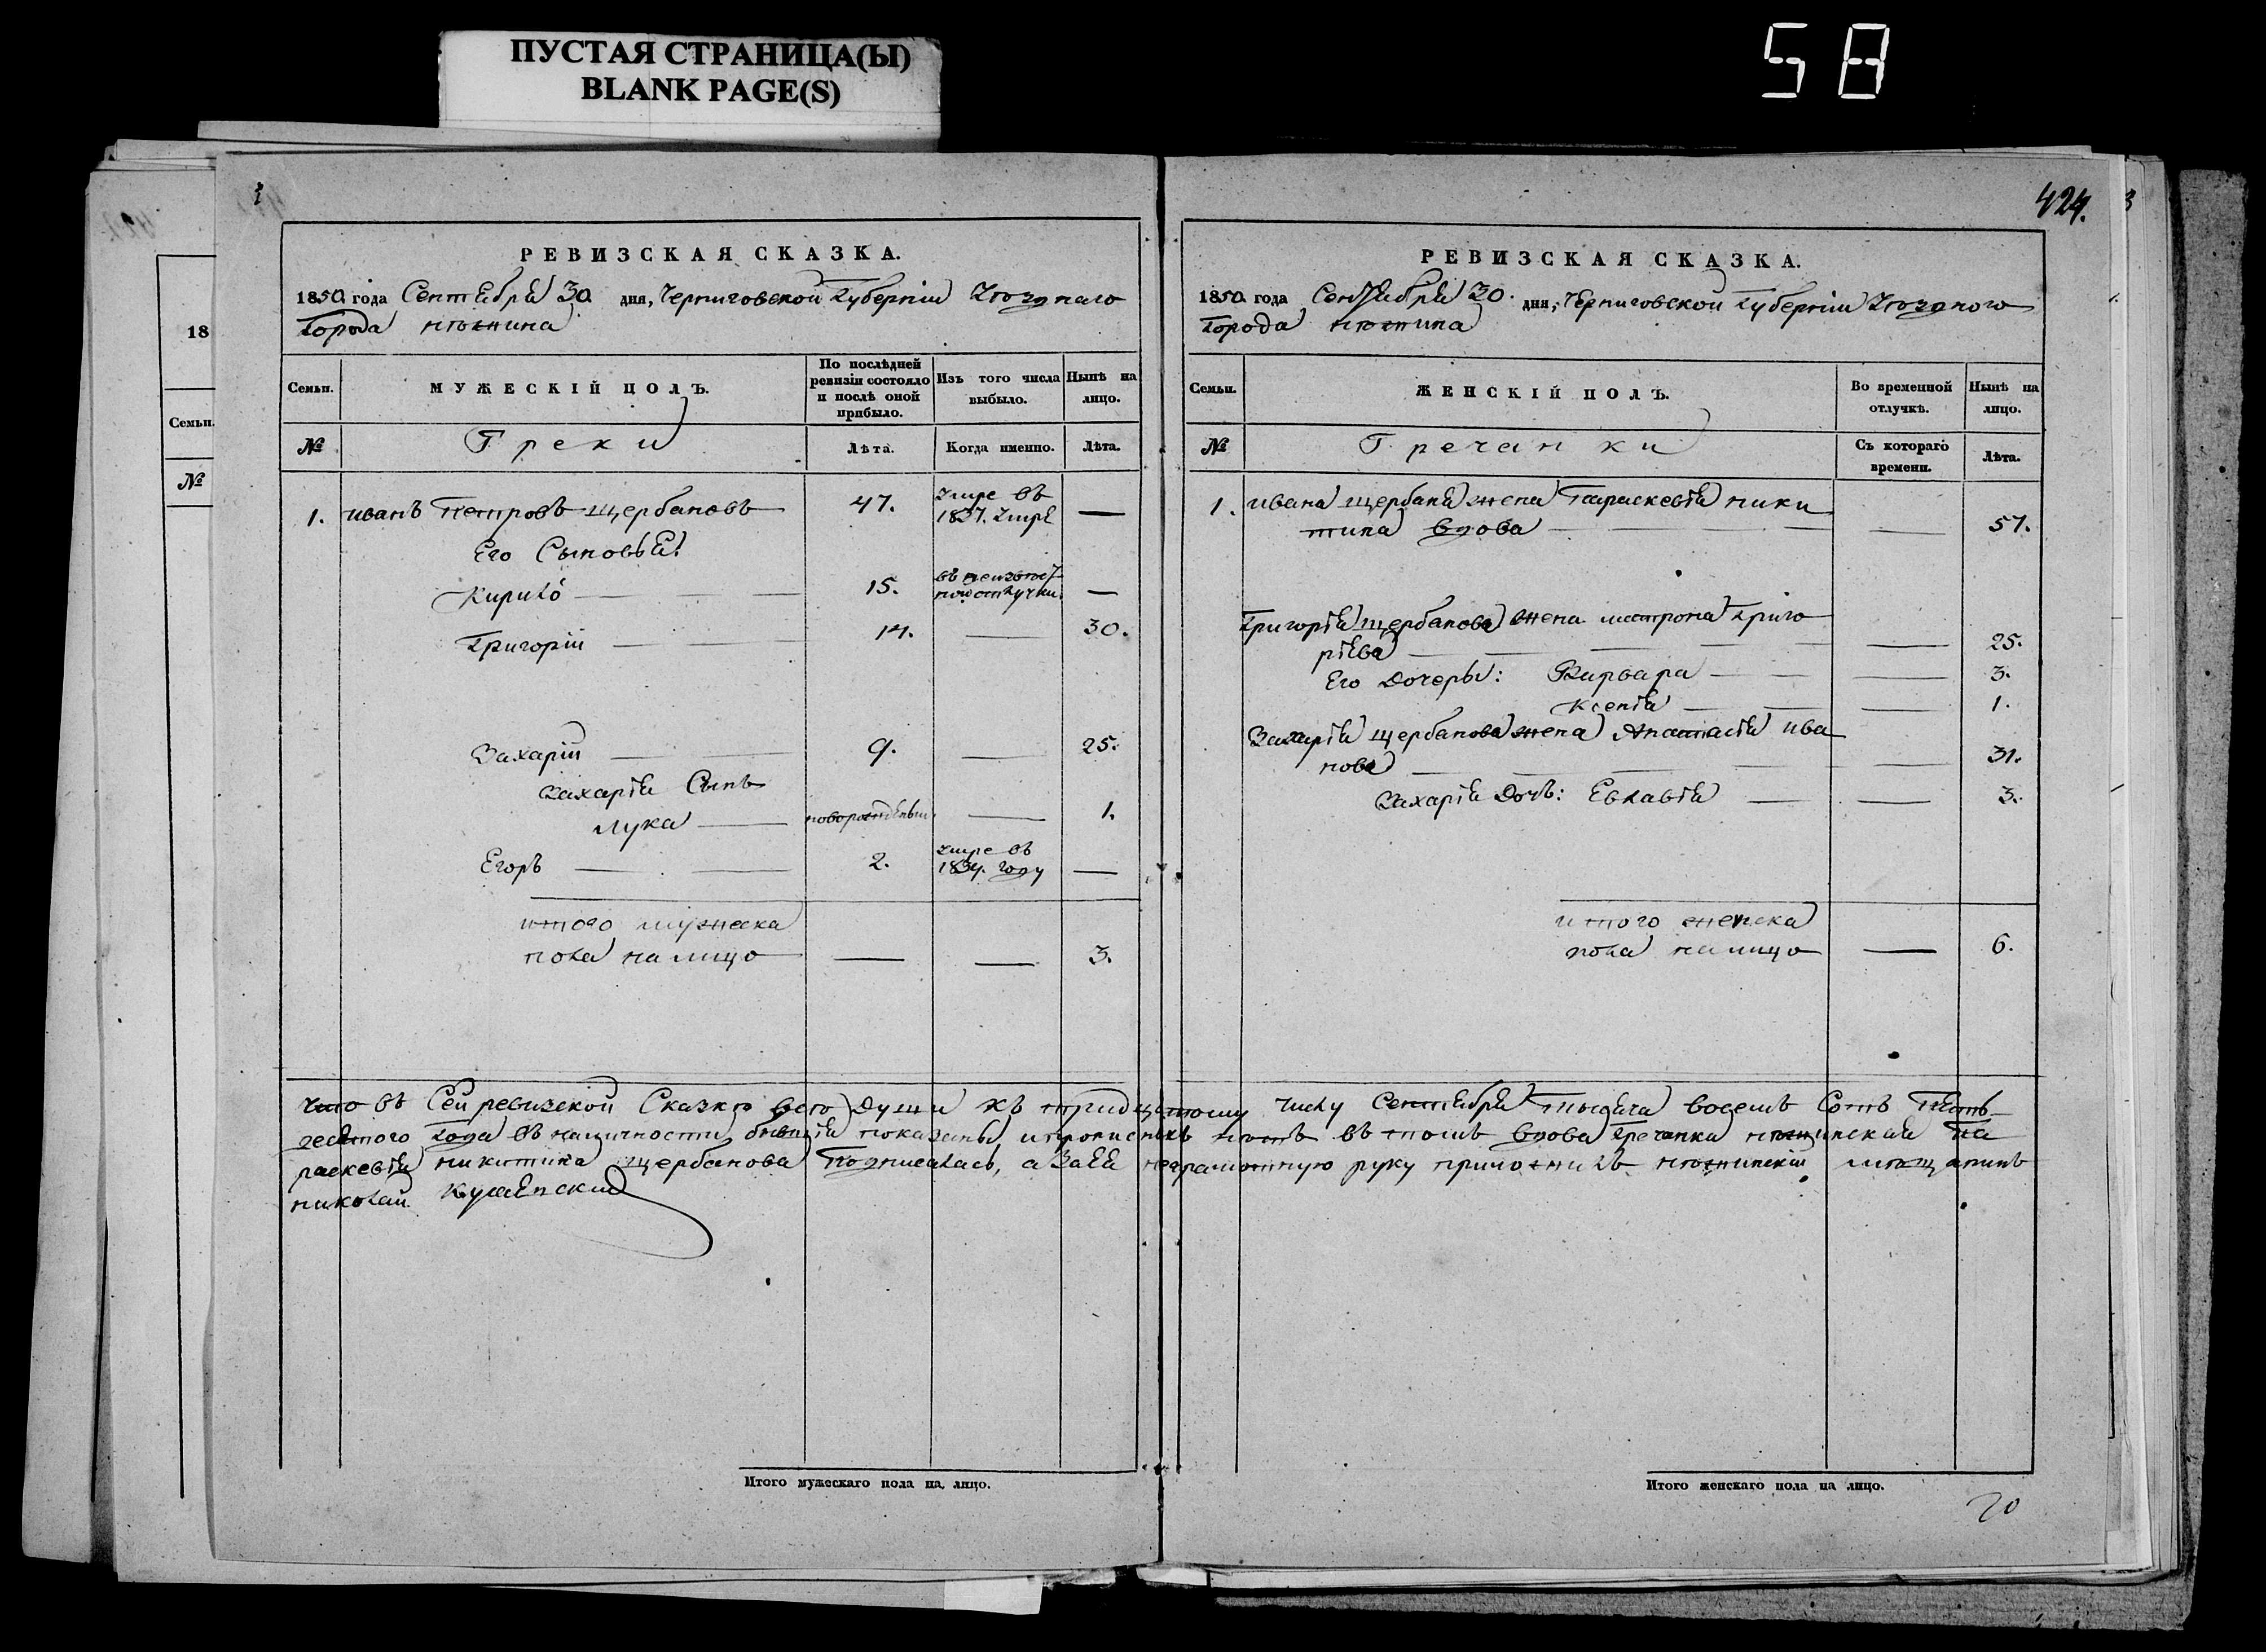 ПУСТАЯ СТРАНИЦА(Ы)
BLANK PAGE(S)
58
424.
18
Семьи.
№
РЕВИЗСКАЯ СКАЗКА.
1850 года Сентебря 30 дня, Черниговской Губерніи Уѣзднаго
Города Нѣжина
Семьи.
МУЖЕСКІЙ ПОЛЪ.
По послѣдней ревизіи состояло и послѣ оной прибыло.
Изъ того числа выбыло.
Нынѣ на лицо.
№
Греки
Лѣта.
Когда именно.
Лѣта.
1. иванъ Петровъ щербановъ 47. умре въ 1837. —
Его Сыновья:
Кирило — 15. въ отлучки —
Григорій — 14. — 30.
Захарій — 9. — 25.
Захарія Сынъ
Лука — новорожденый — 1.
Егоръ — 2. умре въ 1834. году —
итого мужеска
пола на лицо — — 3.
РЕВИЗСКАЯ СКАЗКА.
1850 года Сентября 30 дня, Черниговской Губерніи Уѣздного
Города Нѣжина
Семьи.
ЖЕНСКІЙ ПОЛЪ.
Во временной отлучкѣ.
Нынѣ на лицо.
№
Гречанки
Съ котораго времени.
Лѣта.
1. ивана щербана жена Параскевія ники
тина вдова — — 57.
Григорія щербанова жена матрона Григо
ріева — — 25.
Его Дочеры: Варвара — — 3.
Ксенія — — 1.
Захарія щербанова жена Анастасія ива
нова — — 31.
Захарія Дочь: Евлавія — — 3.
итого женска
пола на лицо — 6.
Что въ Сей ревизской Сказкѣ всѣ Души къ тридцетому числу Сентебря тысеча восемъ Сотъ Петь
десятого Года въ наличности бывшія показаны, и прописныхъ нетъ въ томъ вдова Гречанка нѣжинская Па
раскевія никитина щербанова Подписалась, а За Еѣ неграмотную руку приложилъ нѣжинскій мѣщанинъ
николай
Итого мужескаго пола на лицо.
Итого женскаго пола на лицо.
20